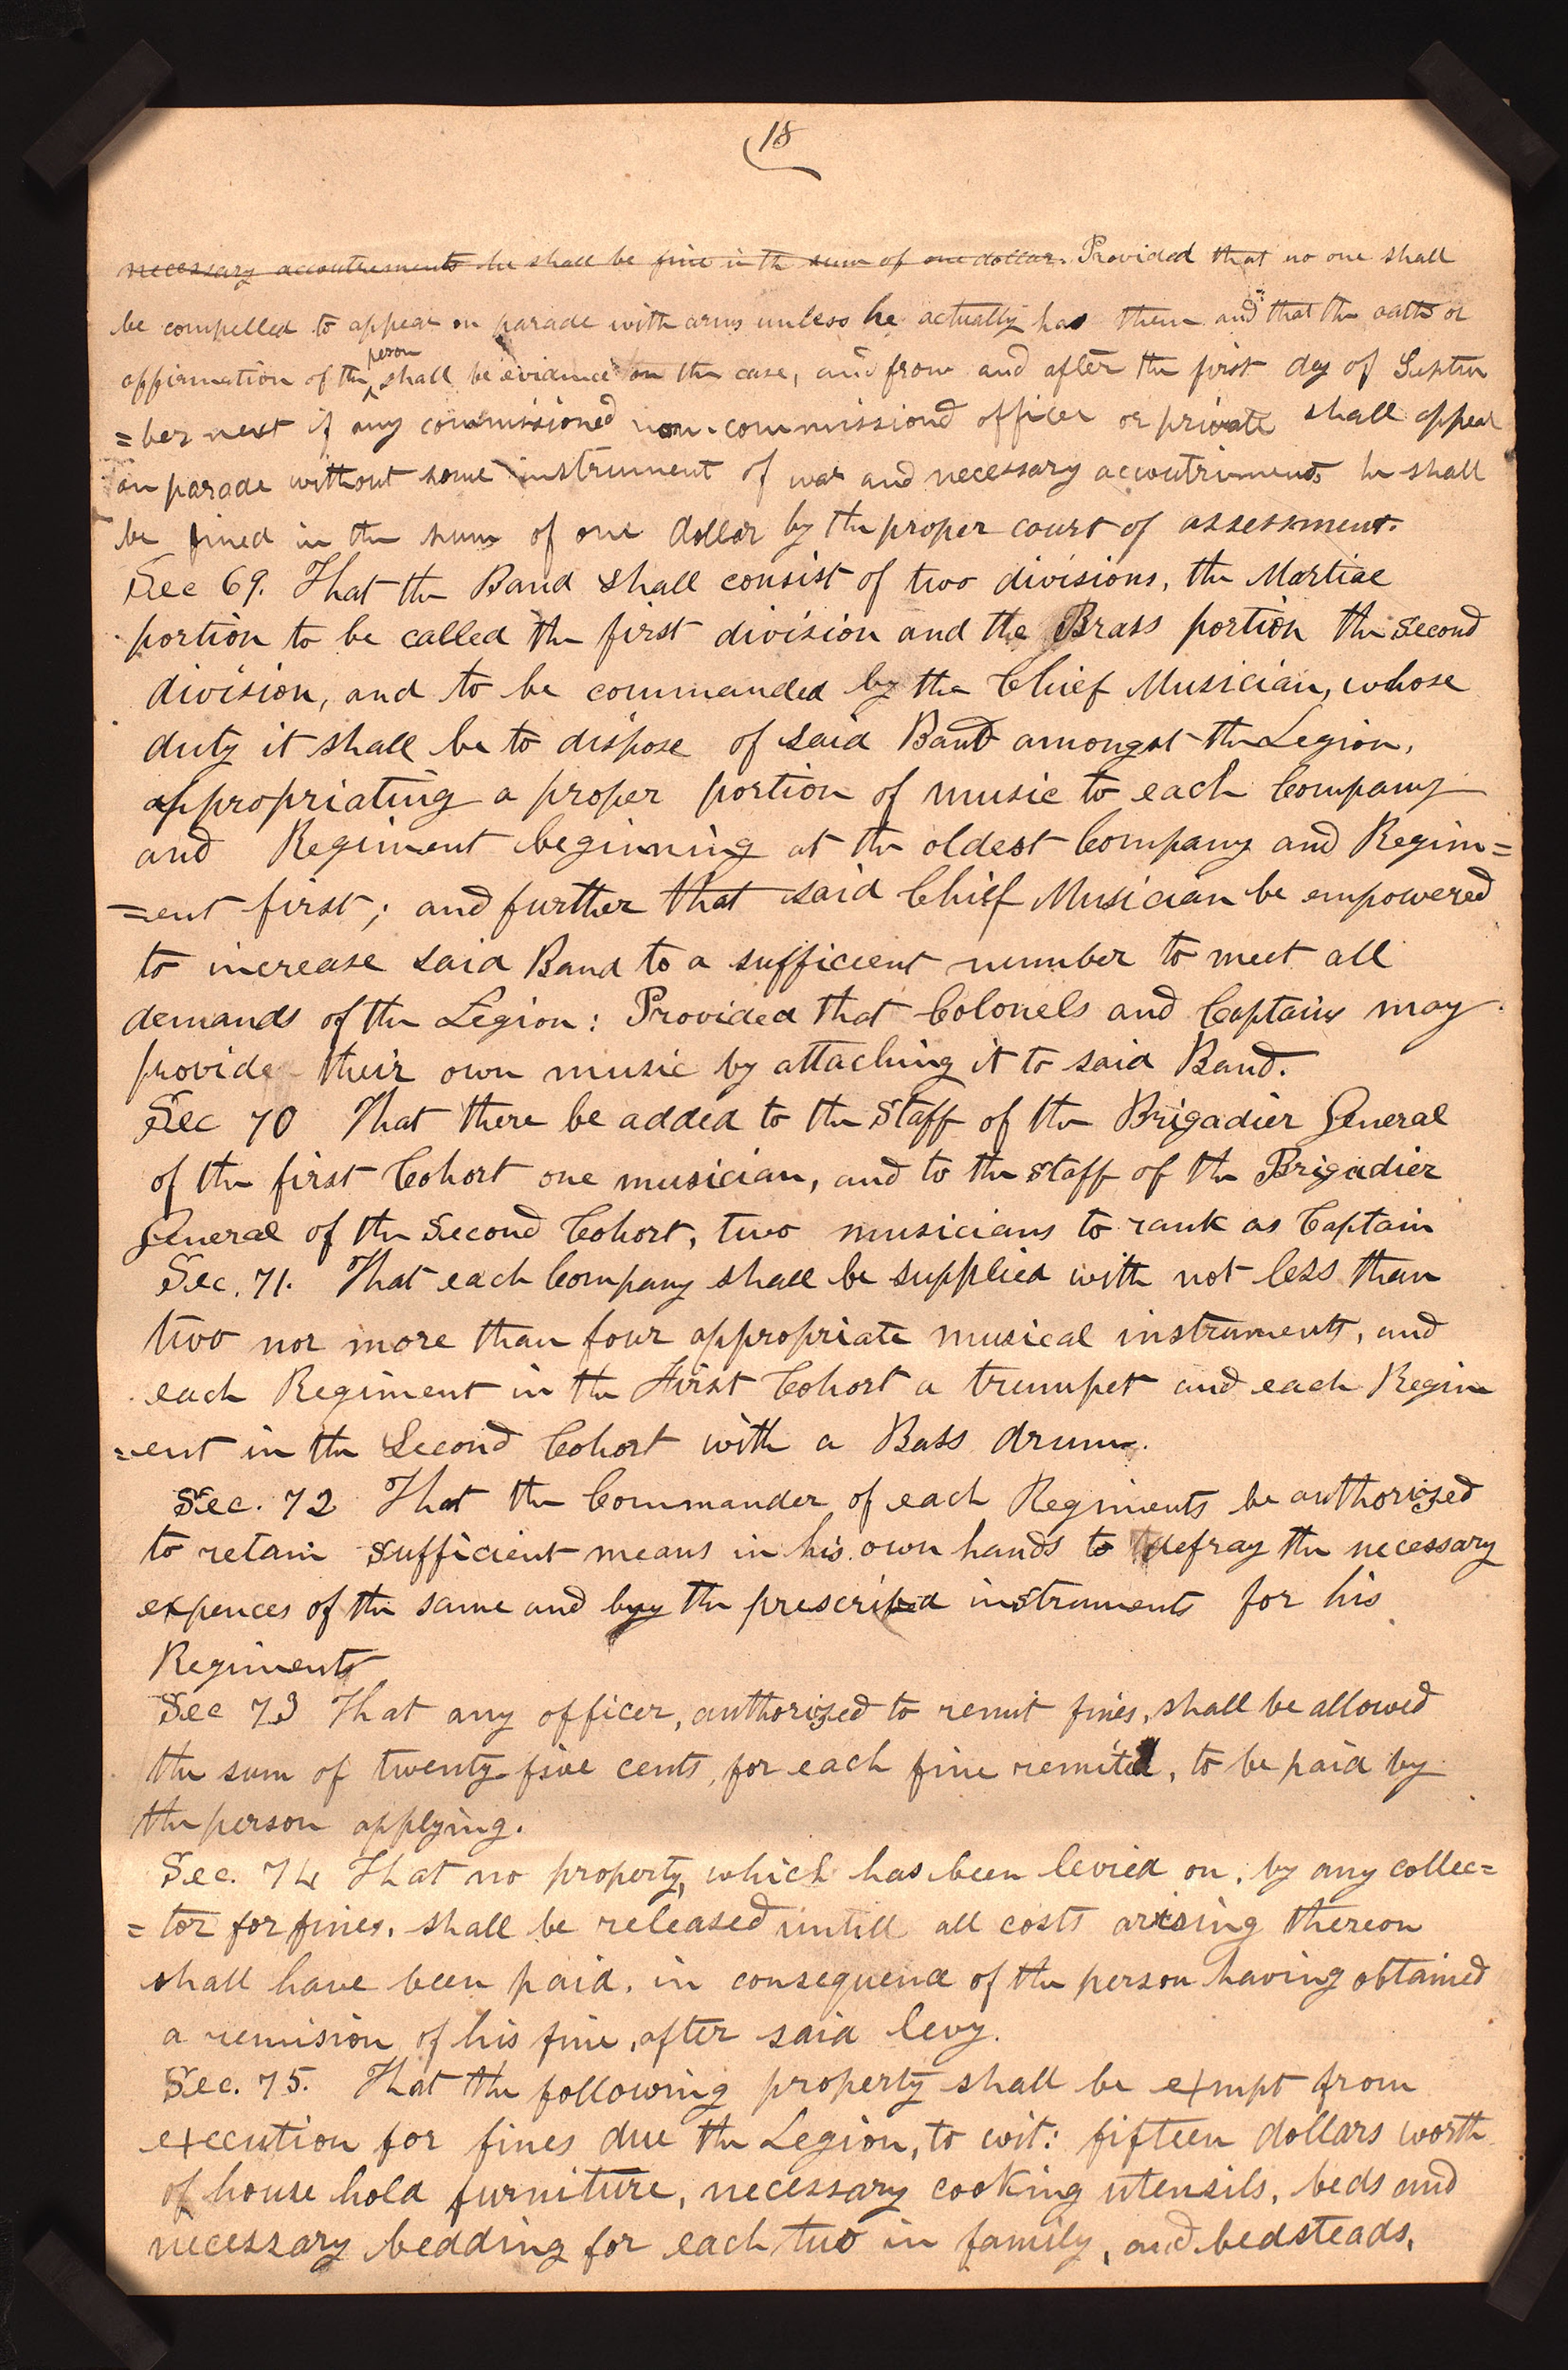 18
necessary accoutrements he shall be fine in th sum of one dollar. Provided that no one shall
be compelled to appear on parade with arms unless he actually has them and that the oath or
person
affirmation of the shall be evidence on the case, and from and after the first day of Septem
=ber next if any commissioned non-commissiond officer or private shall appear
on parade without some instrument of war and necessary accoutriments he shall
be fined in the sum of one dollar by the proper court of assessment.
Sec 69. That the Band shall consist of two divisions, the Martial
portion to be called the first division and the Brass portion the Second
division, and to be commanded by the Chief Musician, whose
duty it shall be to dispose of said Band amongst the Legion,
appropriating a proper portion of music to each Company
and Regiment beginning at the oldest Company and Regim=
=ent first; and further that said Chief Musician be empowered
to increase said Band to a sufficient number to meet all
demands of the Legion: Provided that Colonels and Captains may
provide their own music by attaching it to said Band.
Sec 70 That there be added to the Staff of the Brigadier General
of the first Cohort one musician, and to the staff of the Brigadier
General of the Second Cohort, two musicians to rank as Captain
Sec. 71. That each Company shall be supplied with not less than
two nor more than four appropriate musical instruments, and
each Regiment in the First Cohort a trumpet and each Regim
=ent in the Second Cohort with a Bass drum.
Sec. 72 That the Commander of each Regiments be authorized
to retain sufficient means in his own hands to defray the necessary
expences of the same and buy the prescribed instruments for his
Regiments
Sec 73 That any officer, authorized to remit fines, shall be allowed
the sum of twenty-five cents, for each fine remited, to be paid by
the person applying.
Sec. 74 That no property, which has been levied on, by any collec=
=tor for fines, shall be released untill all costs arising thereon
shall have been paid, in consequence of the person having obtained
a remision of his fine, after said levy.
Sec. 75. That the following property shall be exmpt from
execution for fines due the Legion, to wit: fifteen dollars worth
of house hold furniture, necessary cooking utensils, beds and
necessary bedding for each two in family, and bedsteads,